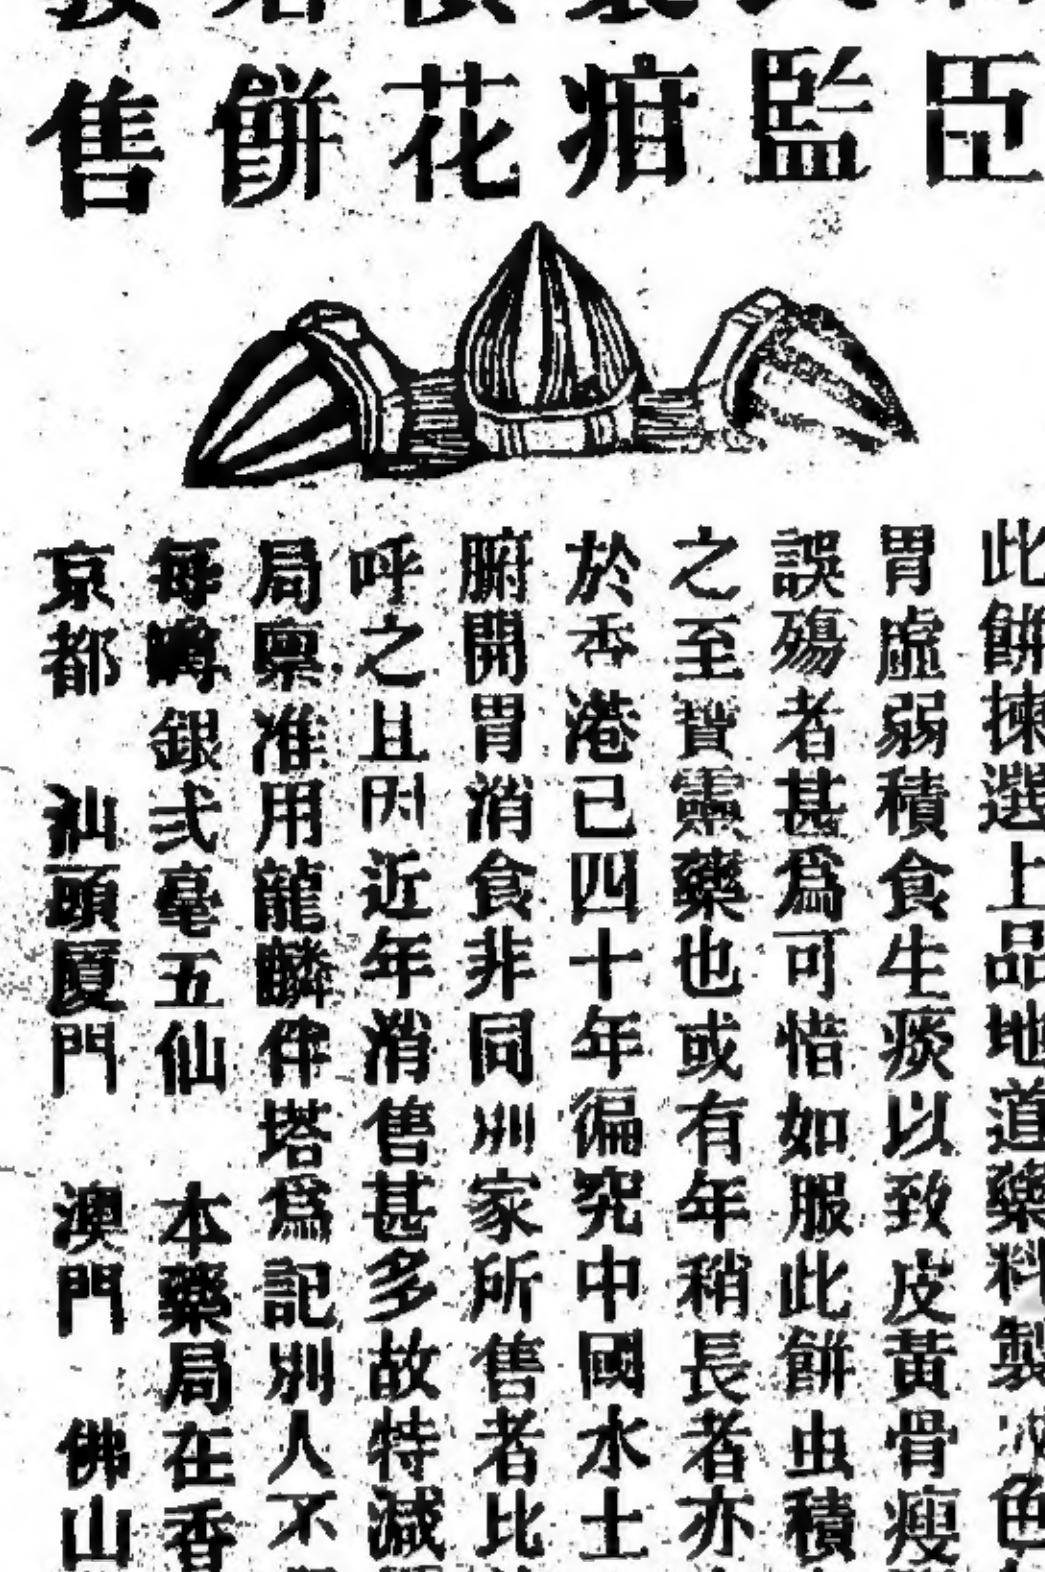 臣監疳花餅售
此餅揀選上品地道藥料製 色
胃虛弱積食生痰以致皮黃骨瘦
誤殤者甚為可惜如服此餅虫積
之至寶靈藥也或有年稍長者亦
於香港已四十年徧究中國水土
腑開胃消食非同別家所售者比
呼之且因近年消售甚多故特減
局稟准用龍麟伴塔為記別人不
每噂銀弍毫五仙 本藥局在香
京都 汕頭厦門 澳門 佛山